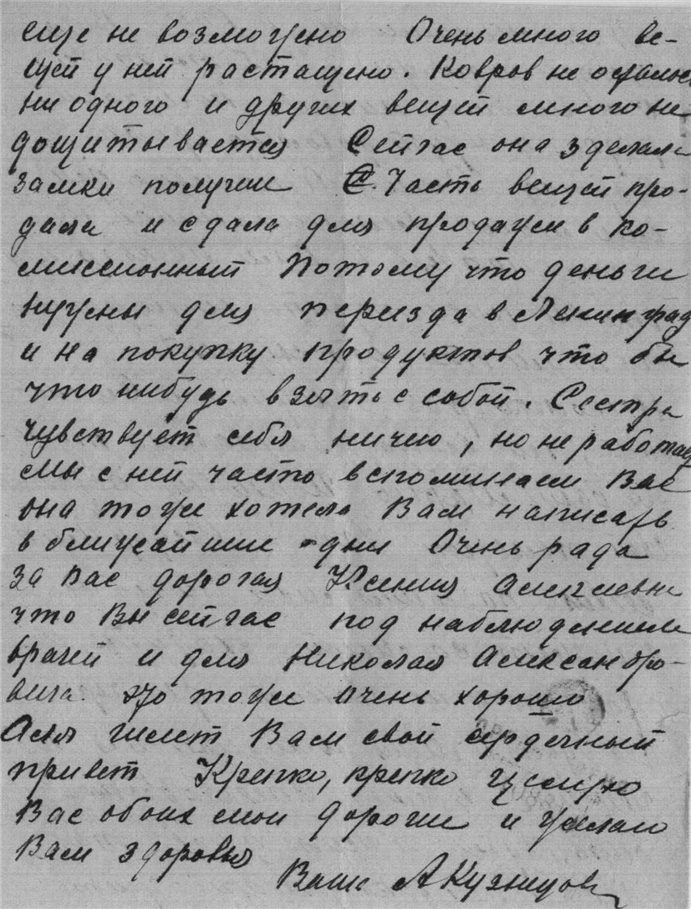 еще не возможно Очень много ве-
щей у ней растащено. Ковров не осталось
ни одного и других вещей много не
дощитывается Сейчас она зделала
замки получше С. Часть вещей про-
дала и сдала для продажи в ко-
миссионный Потому что деньги
нужны для переезда в Ленинград
и на покупку продуктов что бы
что нибудь взять с собой. Сестра
чувствует себя ничего, но не работает
мы с ней часто вспоминаем Вас
она тоже хотела Вам написать
в ближайшие дни Очень рада
за Вас дорогая Ксения Алексеевна
что Вы сейчас под наблюдением
врачей и для Николая Александро-
вича это тоже очень хорошо
Аля шлет Вам свой сердечный
привет Крепко, крепко целую
Вас обоих мои дорогие и желаю
Вам здоровья
Ваша А Кузнецова